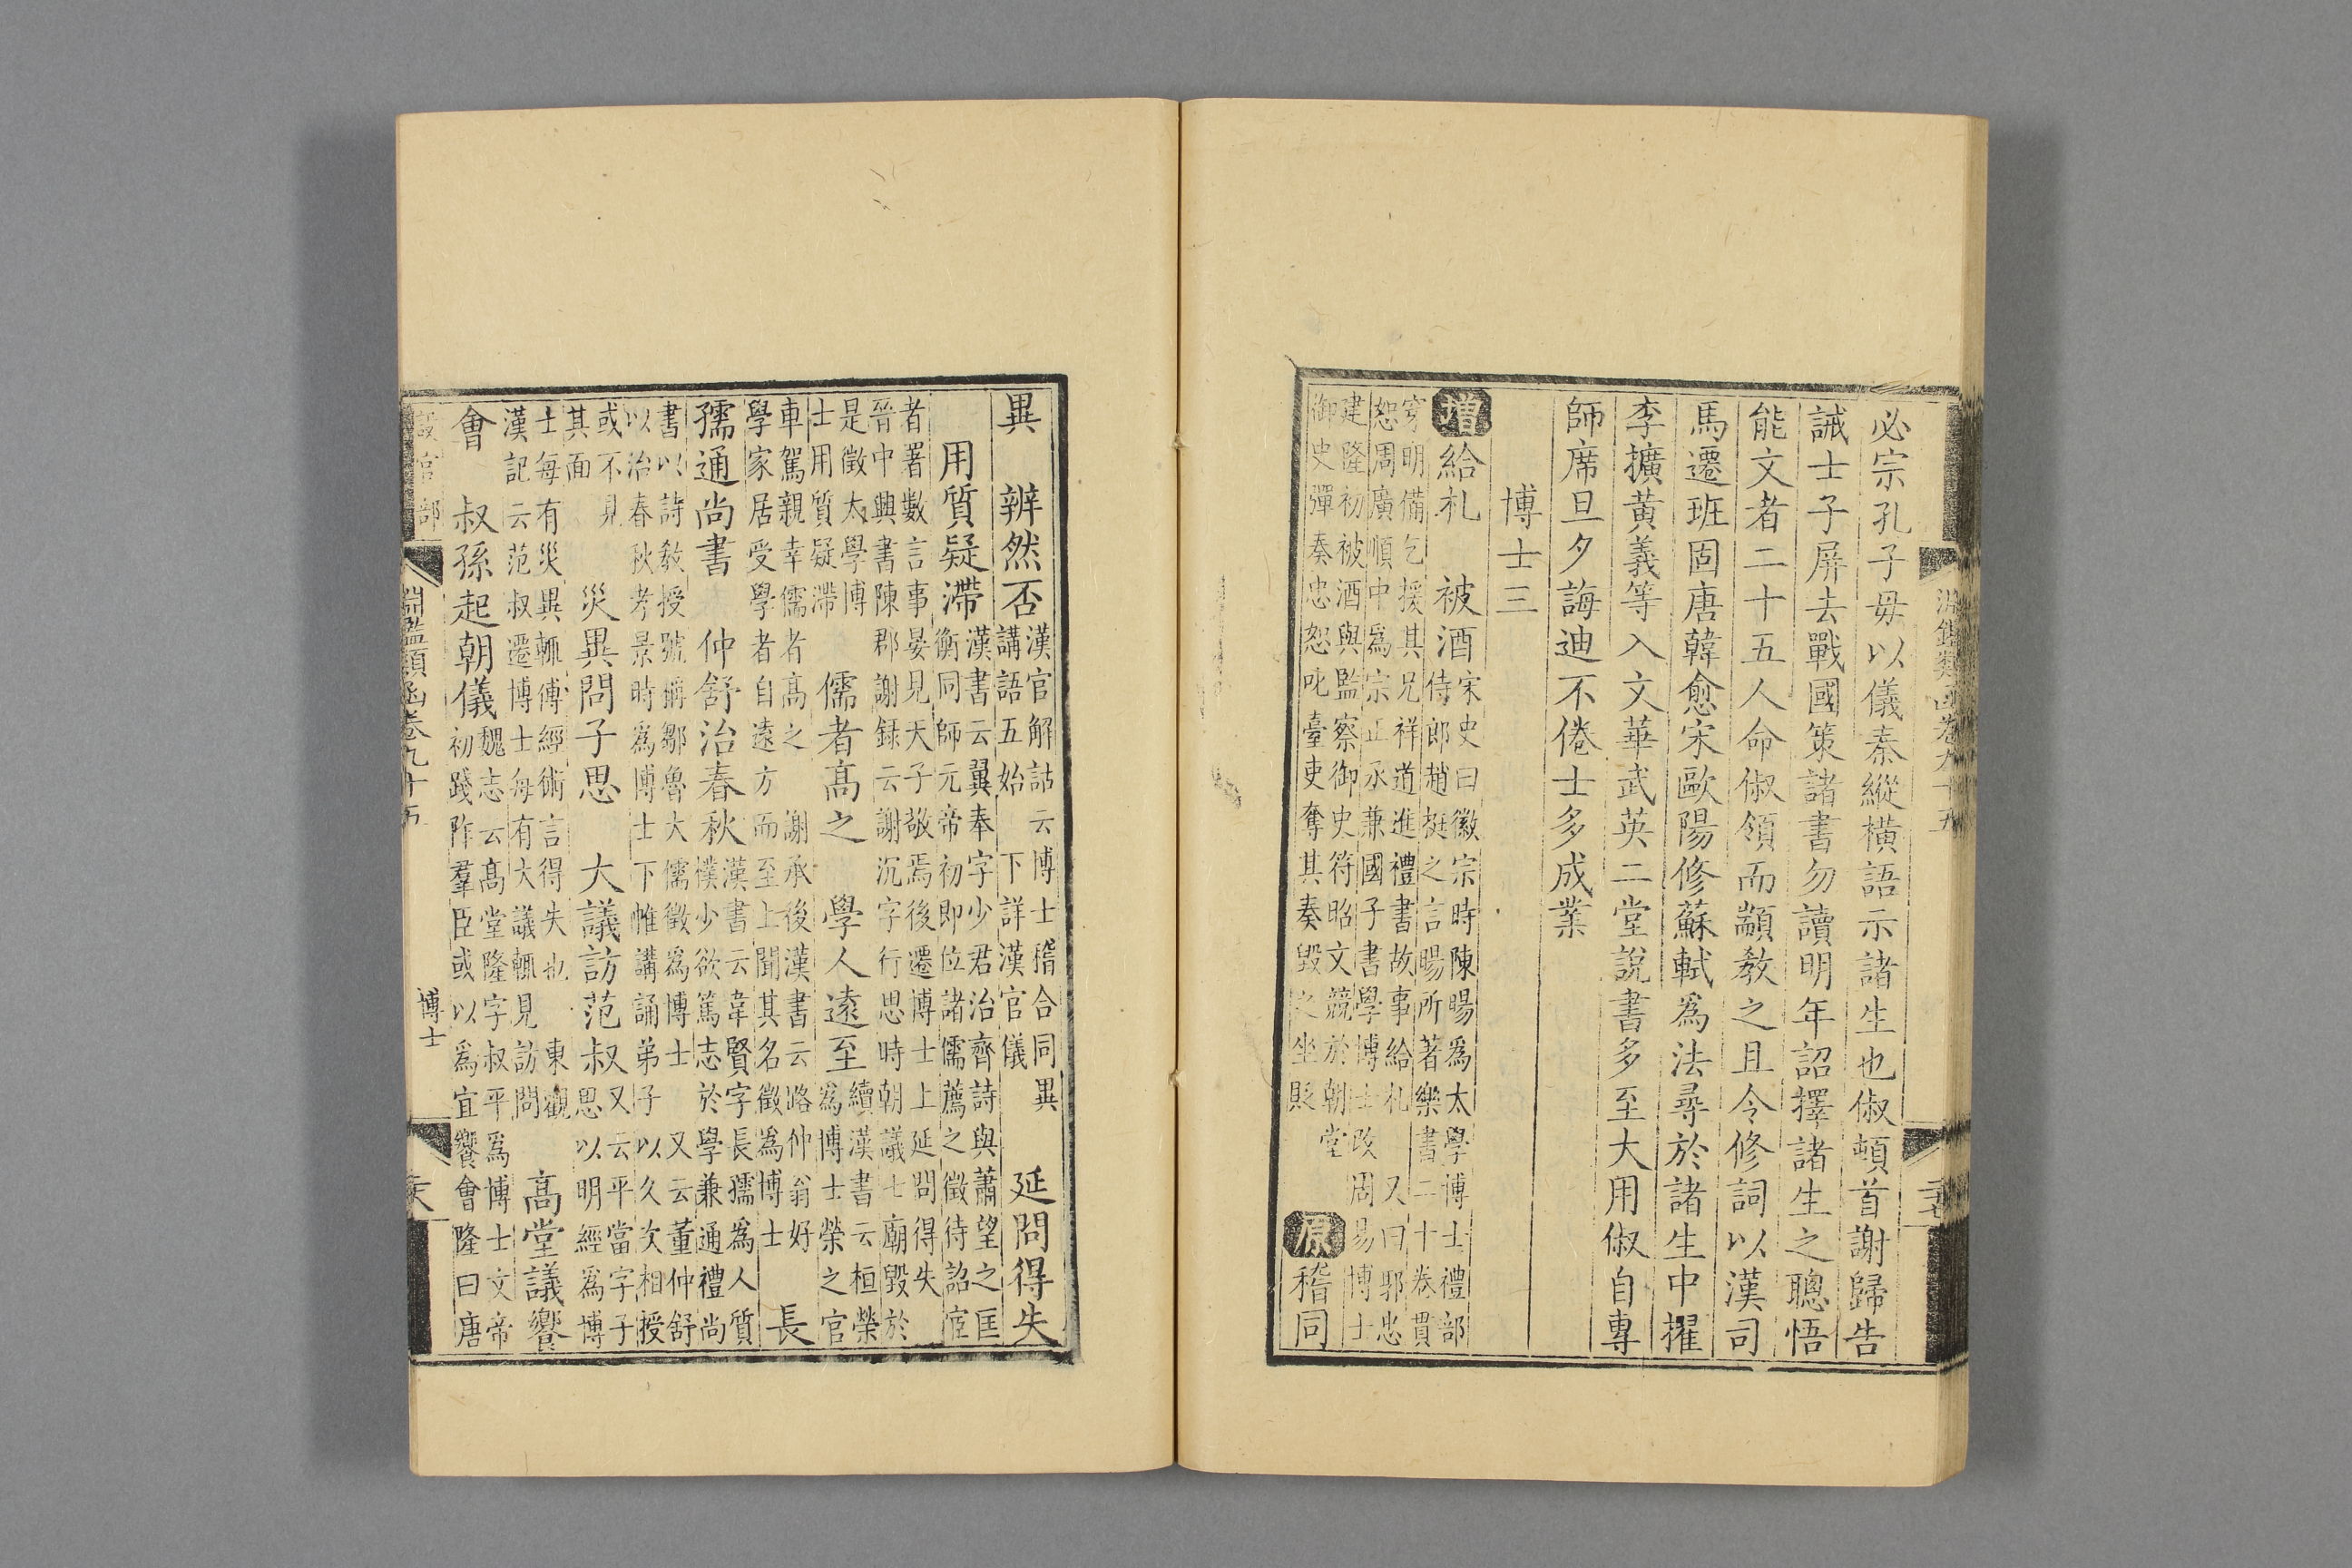 淵鑑類函卷九十五
必宗孔子毋以儀秦縱橫語示諸生也俶頓首謝歸告
誡士子屏去戰國策諸書勿讀明年詔擇諸生之聰悟
能文者二十五人命俶領而顓教之且令修詞以漢司
馬遷班固唐韓愈宋歐陽修蘇軾爲法尋於諸生中擢
李擴黄義等入文華武英二堂說書多至大用俶自專
師席旦夕誨迪不倦士多成業
博士三
增給札　被酒
宋史曰徽宗時陳暘爲太學博士禮部
侍郎趙挺之言暘所著樂書二十卷貫
穿明備乞援其兄祥道進禮書故事給札　又曰郭忠
恕周廣順中爲宗正丞兼國子書學博士改周易博士
建隆初被酒與監察御史符昭文競於朝堂
御史彈奏忠恕叱臺吏奪其奏毀之坐貶
原稽同
異　辨然否
漢官解詁云博士稽合同異
講語五始　下詳漢官儀
延問得失
用質疑滯
漢書云翼奉字少君治齊詩與蕭望之匡
衡同師元帝初即位諸儒薦之徵待詔宦
者署數言事晏見天子敬焉後遷博士上延問得失
晉中興書陳郡謝録云謝沉字行思時朝議七廟毀於
是徵太學博
士用質疑滯
儒者高之　學人遠至
續漢書云桓榮
爲博士榮之官
車駕親幸儒者高之　謝承後漢書云路仲翁好
學家居受學者自遠方而至上聞其名徵爲博士
長
孺通尚書　仲舒治春秋
漢書云韋賢字長孺爲人質
樸少欲篤志於學兼通禮尚
書以詩教授號稱鄒魯大儒徵爲博士　又云董仲舒
以治春秋孝景時爲博士下帷講誦弟子以久次相授
或不見
其面
災異問子思　大議訪范叔
又云平當字子
思以明經爲博
士每有災異輒傅經術言得失也　東觀
漢記云范叔遷博士每有大議輒見訪問
高堂議饗
會　叔孫起朝儀
魏志云高堂隆字叔平爲博士文帝
初踐阼羣臣或以爲宜饗會隆曰唐
設官部
淵鑑類函卷九十五
博士